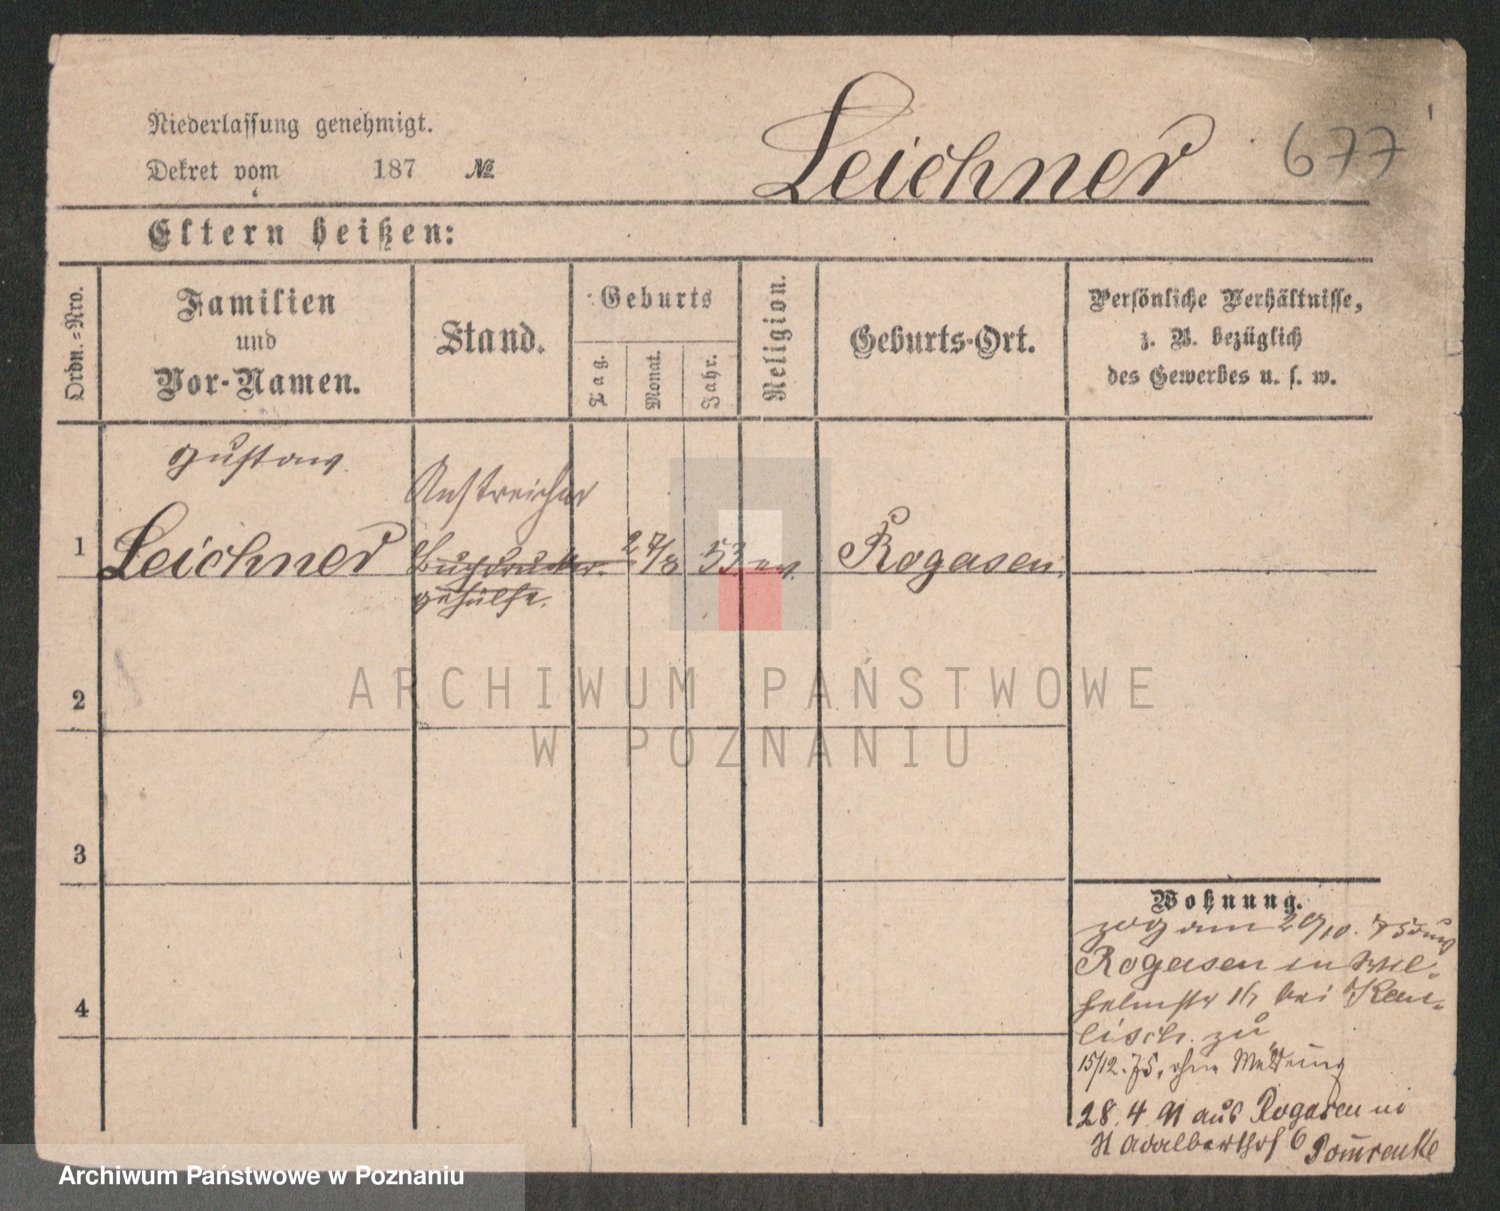 Niederlassung genehmigt.
Dekret vom 187 №
Leichner 677
Eltern heißen:
Ordn.=Nro.
Familien
und
Vor-Namen.
Stand.
Geburts
Tag.
Monat.
Jahr.
Religion.
Geburts-Ort.
Persönliche Verhältnisse,
z. B. bezüglich
des Gewerbes u. s. w.
Gustav
Anstreicher
1 Leichner Buchdrucker- 27/3 53 ev. Rogasen.
gehülfe.
2
3
4
Wohnung.
zog am 29/10. 75 aus
Rogasen in Wil-
helmstr 16 bei
zu
15/12. 75, ohne Meldung
28. 4. 91 aus Rogasen in
Adalberthof 6
ARCHIWUM PAŃSTWOWE
W POZNANIU
Archiwum Państwowe w Poznaniu